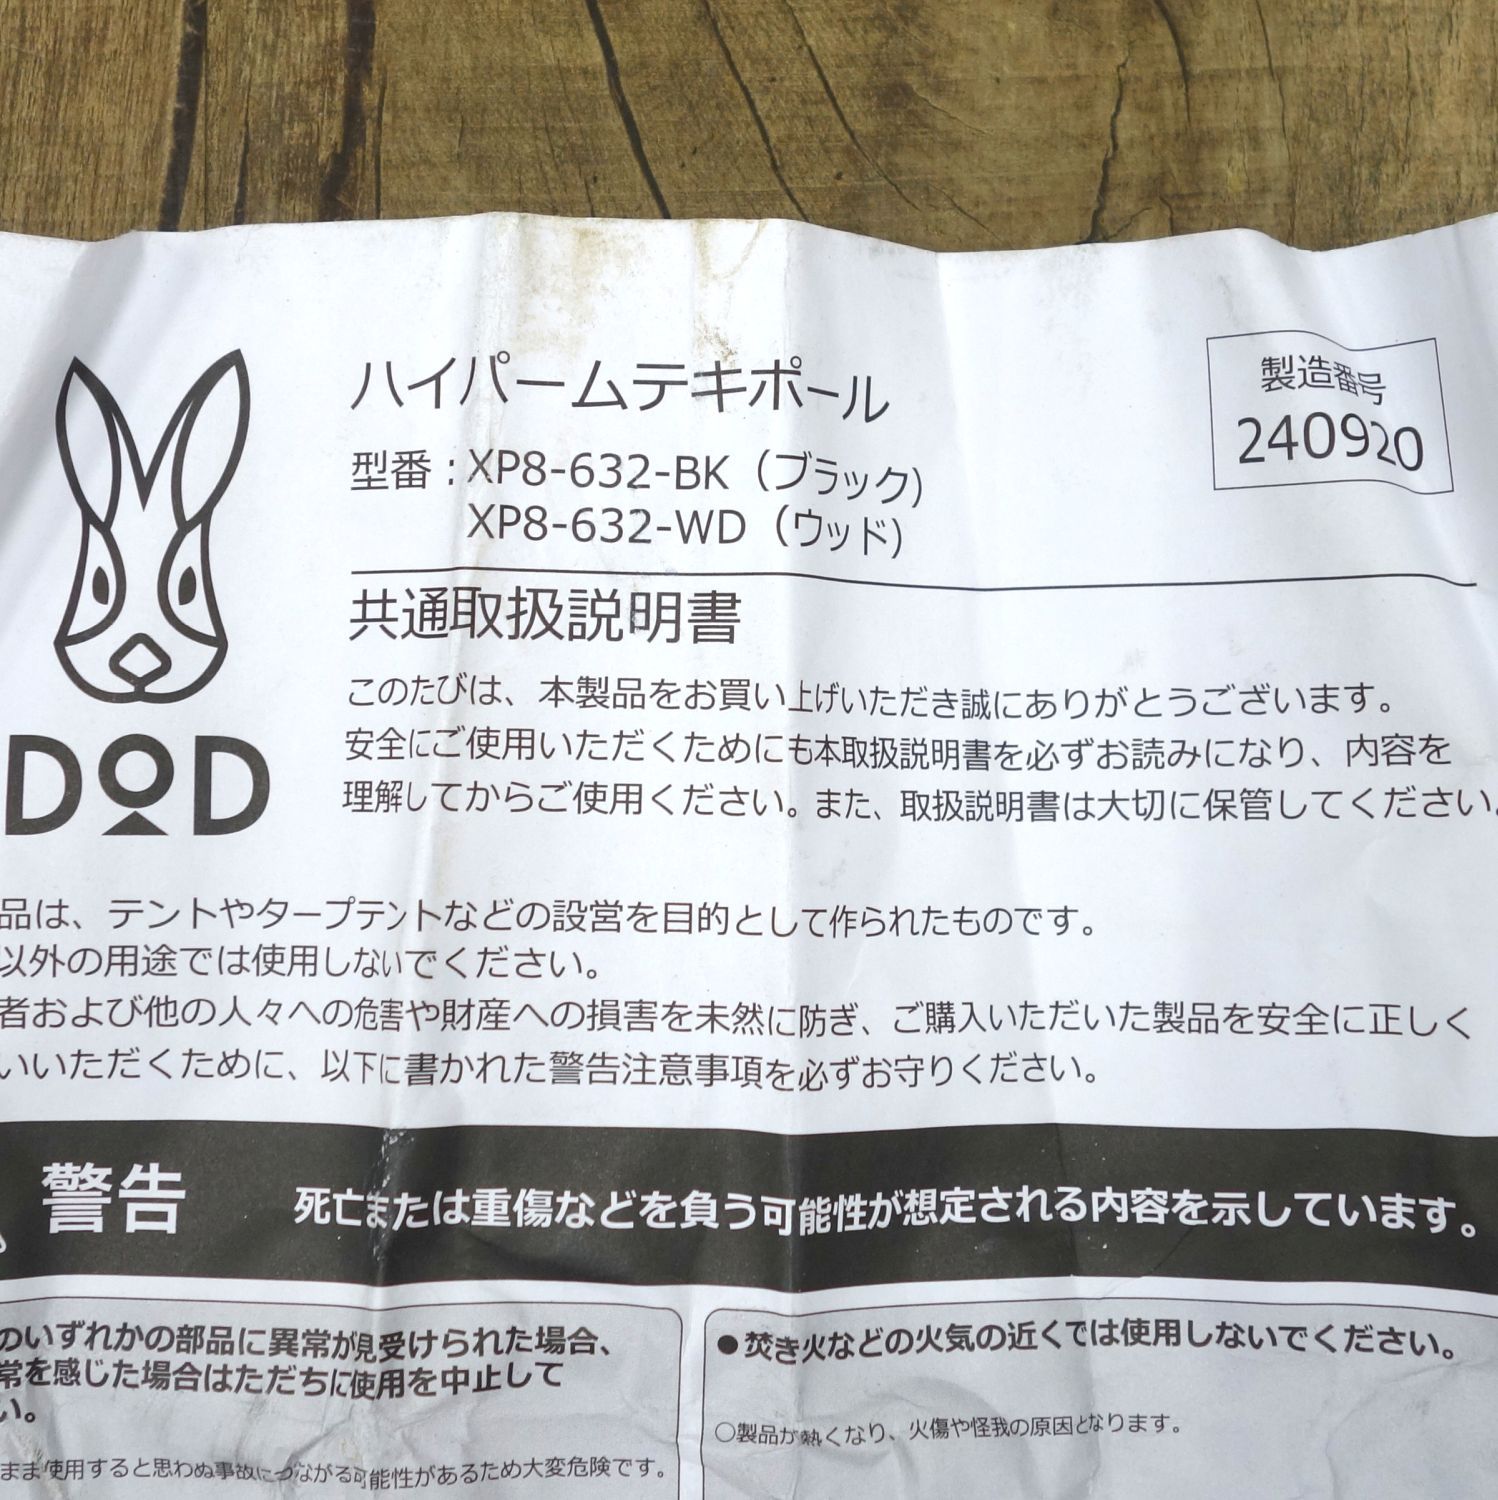 ハイパームテキポール
製造番号
240920
型番：XP8-632-BK（ブラック）
XP8-632-WD（ウッド）
共通取扱説明書
DOD
このたびは、本製品をお買い上げいただき誠にありがとうございます。
安全にご使用いただくためにも本取扱説明書を必ずお読みになり、内容を
理解してからご使用ください。また、取扱説明書は大切に保管してください。
品は、テントやタープテントなどの設営を目的として作られたものです。
以外の用途では使用しないでください。
者および他の人々への危害や財産への損害を未然に防ぎ、ご購入いただいた製品を安全に正しく
いいただくために、以下に書かれた警告注意事項を必ずお守りください。
警告 死亡または重傷などを負う可能性が想定される内容を示しています。
のいずれかの部品に異常が見受けられた場合、
常を感じた場合はただちに使用を中止して
い。
まま使用すると思わぬ事故につながる可能性があるため大変危険です。
●焚き火などの火気の近くでは使用しないでください。
○製品が熱くなり、火傷や怪我の原因となります。